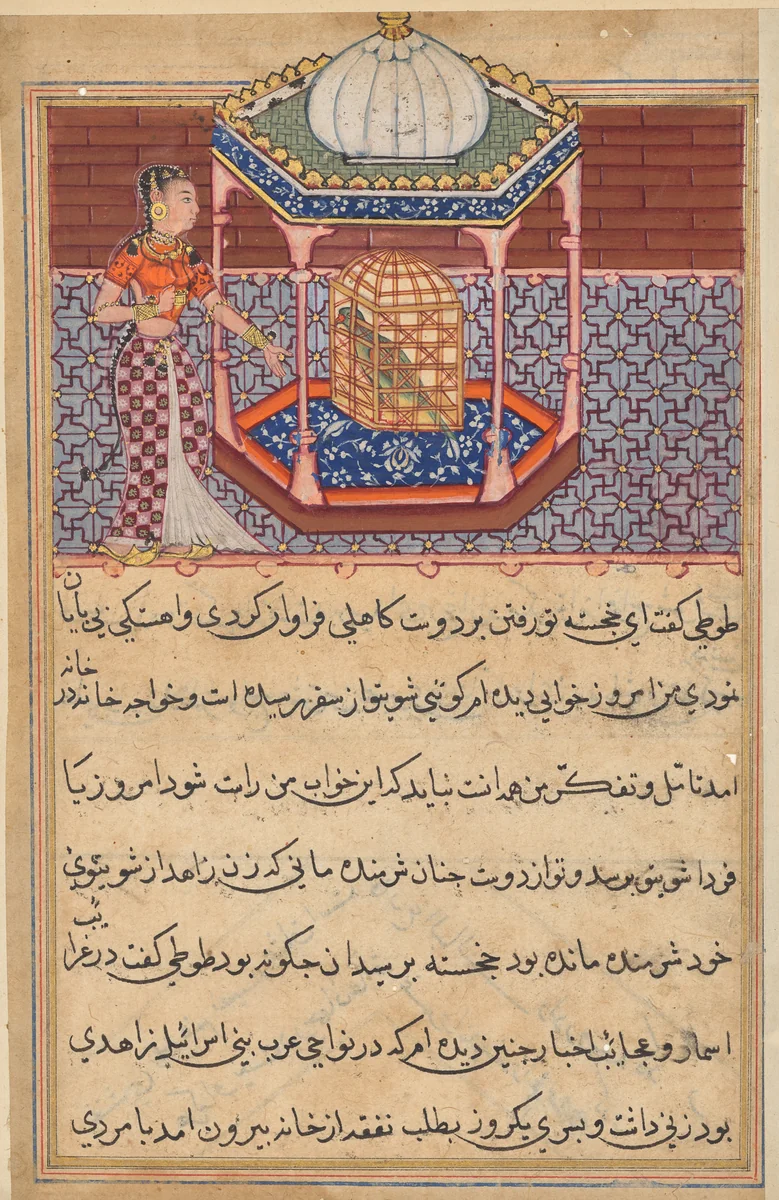 طوطي كفت اي خجسته تو رفتن بر دوست كاهلي فراوان كردي و اهستكي بي پايان
نمودي من امروز خوابي ديده ام كوئي شوي تو از سفر رسيده است و خواجه خانه در خانه
امد تامّل و تفكّر من همه انست نبايد كه اين خواب من راست شود امروز يا
فردا شوي تو برسد و تو از دوست جنان شرمنده ماني كه زن زاهد از شوي نوي
خود شرمنده مانده بود خجسته برسيد ان جكونه بود طوطي كفت در غرايب
اسمار و عجايب اخبار جنين ديده ام كه در نواحي عرب بني اسرائيل زاهدي
بود زني داشت و بسري يكروز بطلب نفقه از خانه بيرون امد با مردي